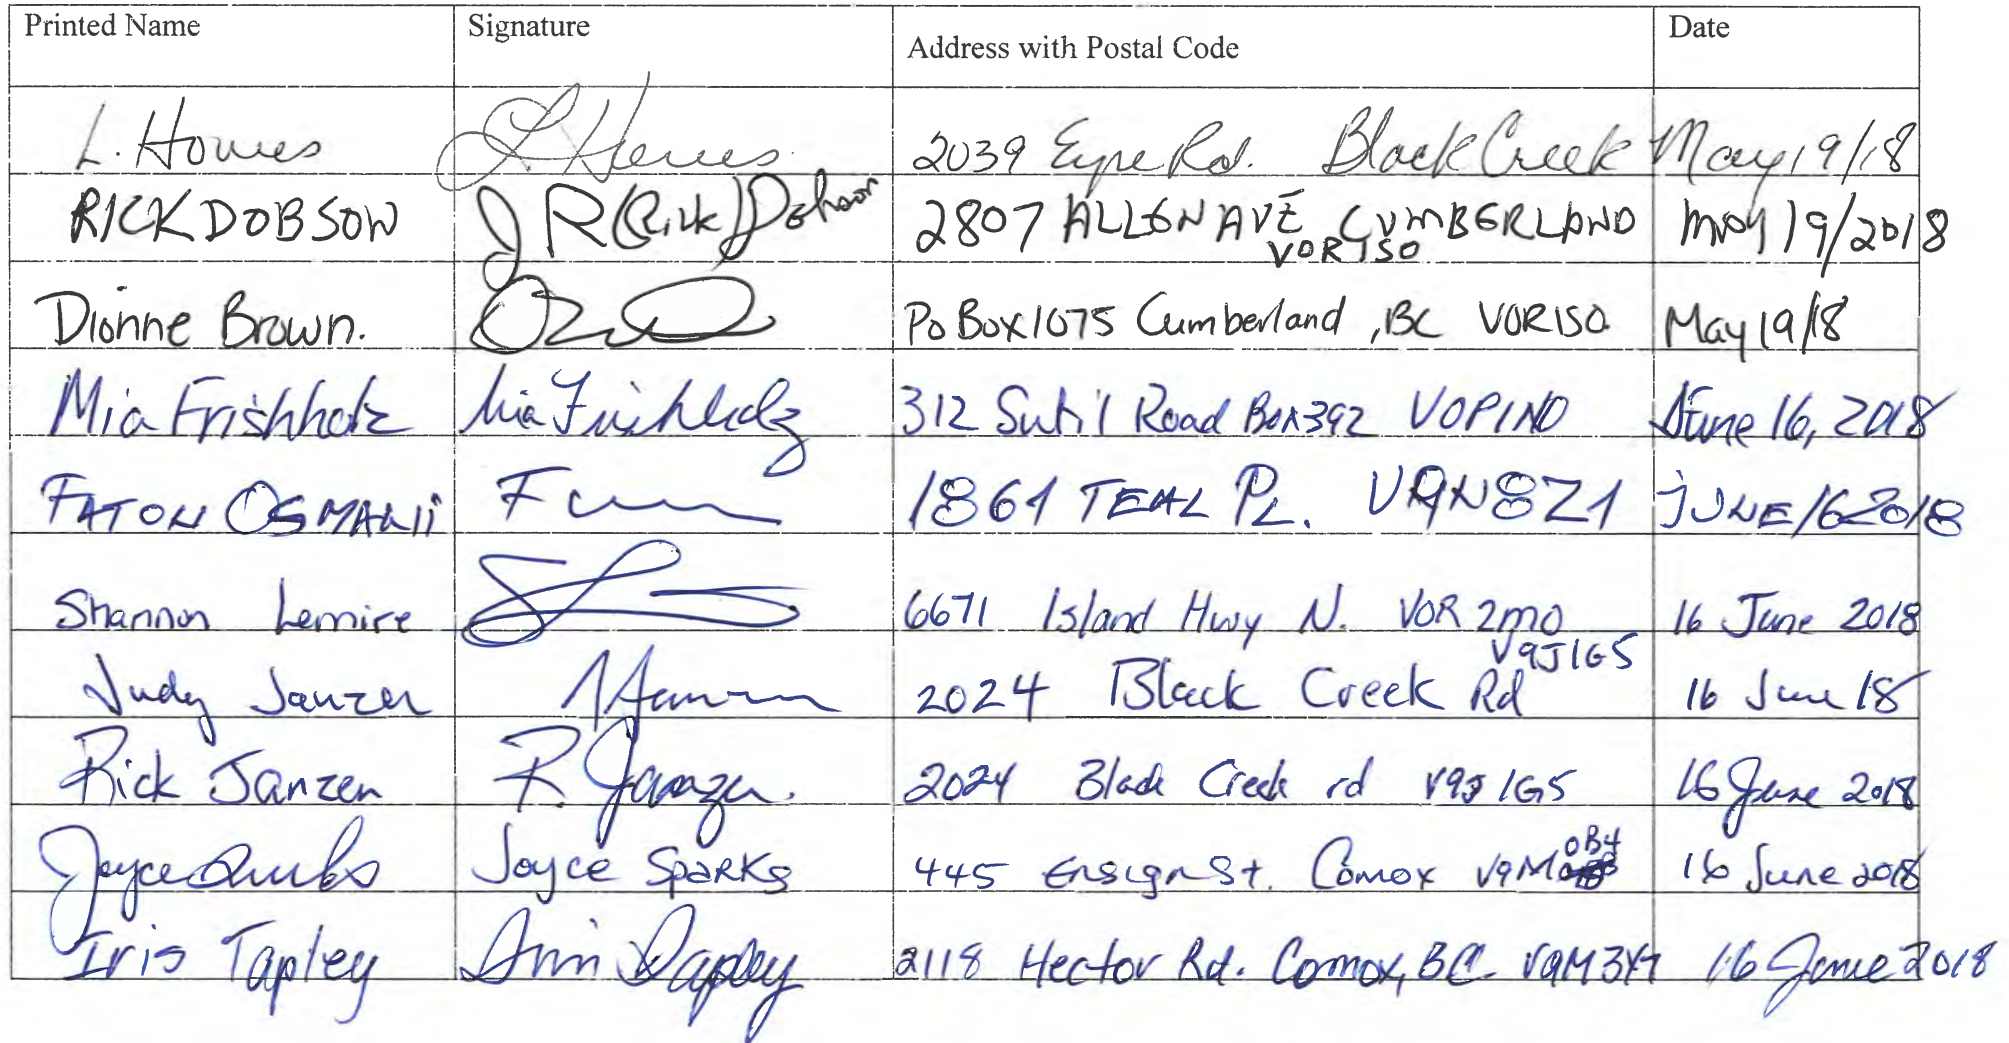 Printed Name Signature Address with Postal Code Date
L. Howes L Howes 2039 Eyre Rd. Black Creek May 19/18
RICK DOBSON J R (Rick) Dobson 2807 ALLEN AVE CUMBERLAND May 19/2018
V0R 1S0
Dionne Brown. PO Box 1075 Cumberland, BC V0R1S0 May 19/18
Mia Frishholz Mia Frishholz 312 Sutil Road Box 392 V0P1N0 June 16, 2018
FATON OSMANii F 1861 TEAL PL. V9N8Z1 jUNE/16 2018
Shannon Lemire 6671 Island Hwy N. V0R 2M0 16 June 2018
V9J1G5
Judy Janzen 2024 Black Creek Rd 16 June 18
Rick Janzen R. Janzen. 2024 Black Creek rd V9J 1G5 16 June 2018
0B4
Joyce Sparks Joyce Sparks 445 Ensign St. Comox V9M 16 June 2018
Iris Tapley Iris Tapley 2118 Hector Rd. Comox, BC V9M 3Y7 16 June 2018